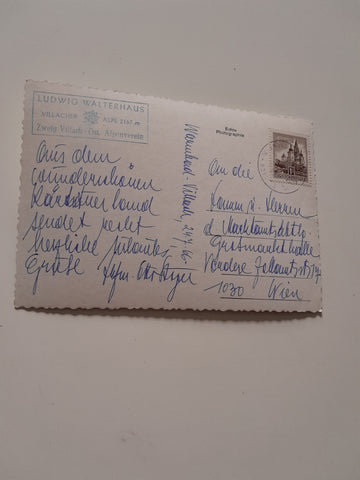 LUDWIG WALTERHAUS
VILLACHER ALPE 2167 m
Zweig Villach - Öst. Alpenverein
Aus dem
wunderschönen
Kärntner Land
sendet recht
herzliche Urlaubs-
Grüße
Warmbad - Villach,
Echte
Photographie
An die
Damen u. Herren
d. Marktamtsabtlg
Großmarkthalle
Vordere Zollamtsstr
1030 Wien